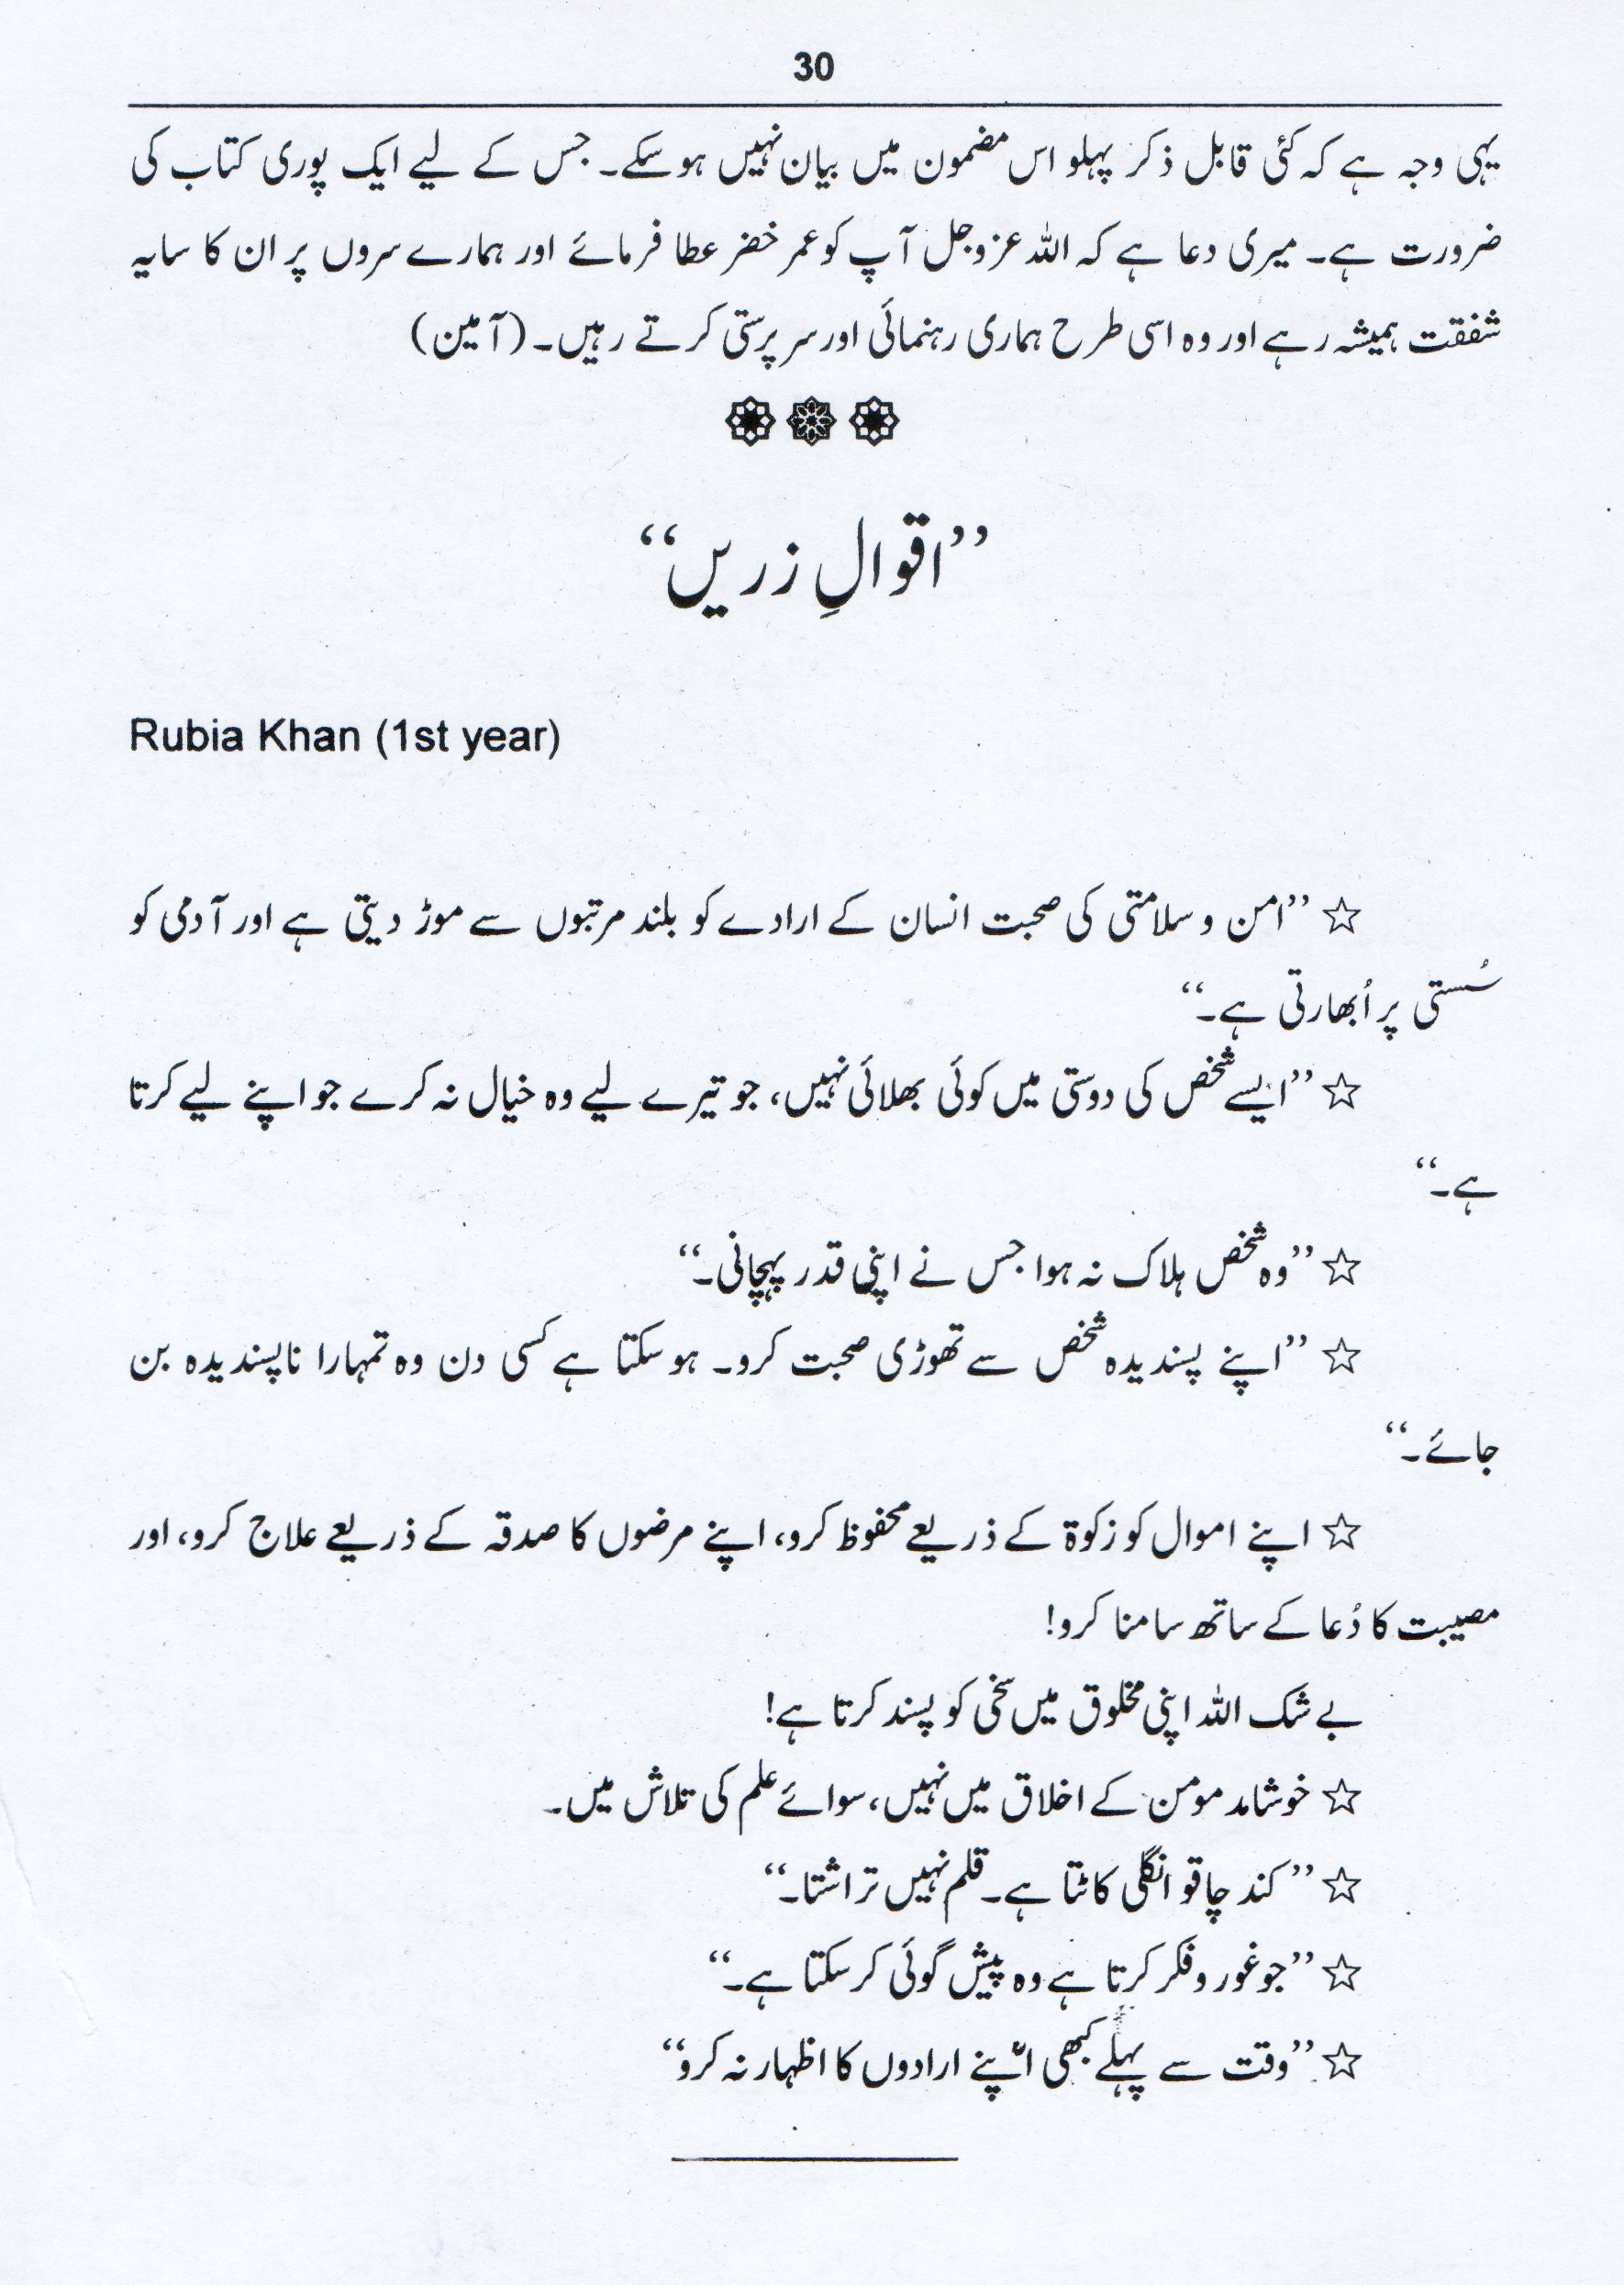 30
یہی وجہ ہے کہ کئی قابل ذکر پہلو اس مضمون میں بیان نہیں ہو سکے۔ جس کے لیے ایک پوری کتاب کی
ضرورت ہے۔ میری دعا ہے کہ اللہ عزوجل آپ کو عمر خضر عطا فرمائے اور ہمارے سروں پر ان کا سایہ
شفقت ہمیشہ رہے اور وہ اسی طرح ہماری رہنمائی اور سر پرستی کرتے رہیں۔ (آمین)
’’اقوالِ زریں‘‘
Rubia Khan (1st year)
☆ ’’امن و سلامتی کی صحبت انسان کے ارادے کو بلند مرتبوں سے موڑ دیتی ہے اور آدمی کو
سُستی پر اُبھارتی ہے۔‘‘
☆ ’’ایسے شخص کی دوستی میں کوئی بھلائی نہیں، جو تیرے لیے وہ خیال نہ کرے جو اپنے لیے کرتا
ہے۔‘‘
☆ ’’وہ شخص ہلاک نہ ہوا جس نے اپنی قدر پہچانی۔‘‘
☆ ’’اپنے پسندیدہ شخص سے تھوڑی صحبت کرو۔ ہو سکتا ہے کسی دن وہ تمہارا ناپسندیدہ بن
جائے۔‘‘
☆ اپنے اموال کو زکوۃ کے ذریعے محفوظ کرو، اپنے مرضوں کا صدقہ کے ذریعے علاج کرو، اور
مصیبت کا دُعا کے ساتھ سامنا کرو!
بے شک اللہ اپنی مخلوق میں سخی کو پسند کرتا ہے!
☆ خوشامد مومن کے اخلاق میں نہیں، سوائے علم کی تلاش میں۔
☆ ’’کند چاقو انگلی کاٹتا ہے۔ قلم نہیں تراشتا۔‘‘
☆ ’’جو غور و فکر کرتا ہے وہ پیش گوئی کر سکتا ہے۔‘‘
☆ ’’وقت سے پہلے کبھی اپنے ارادوں کا اظہار نہ کرو‘‘